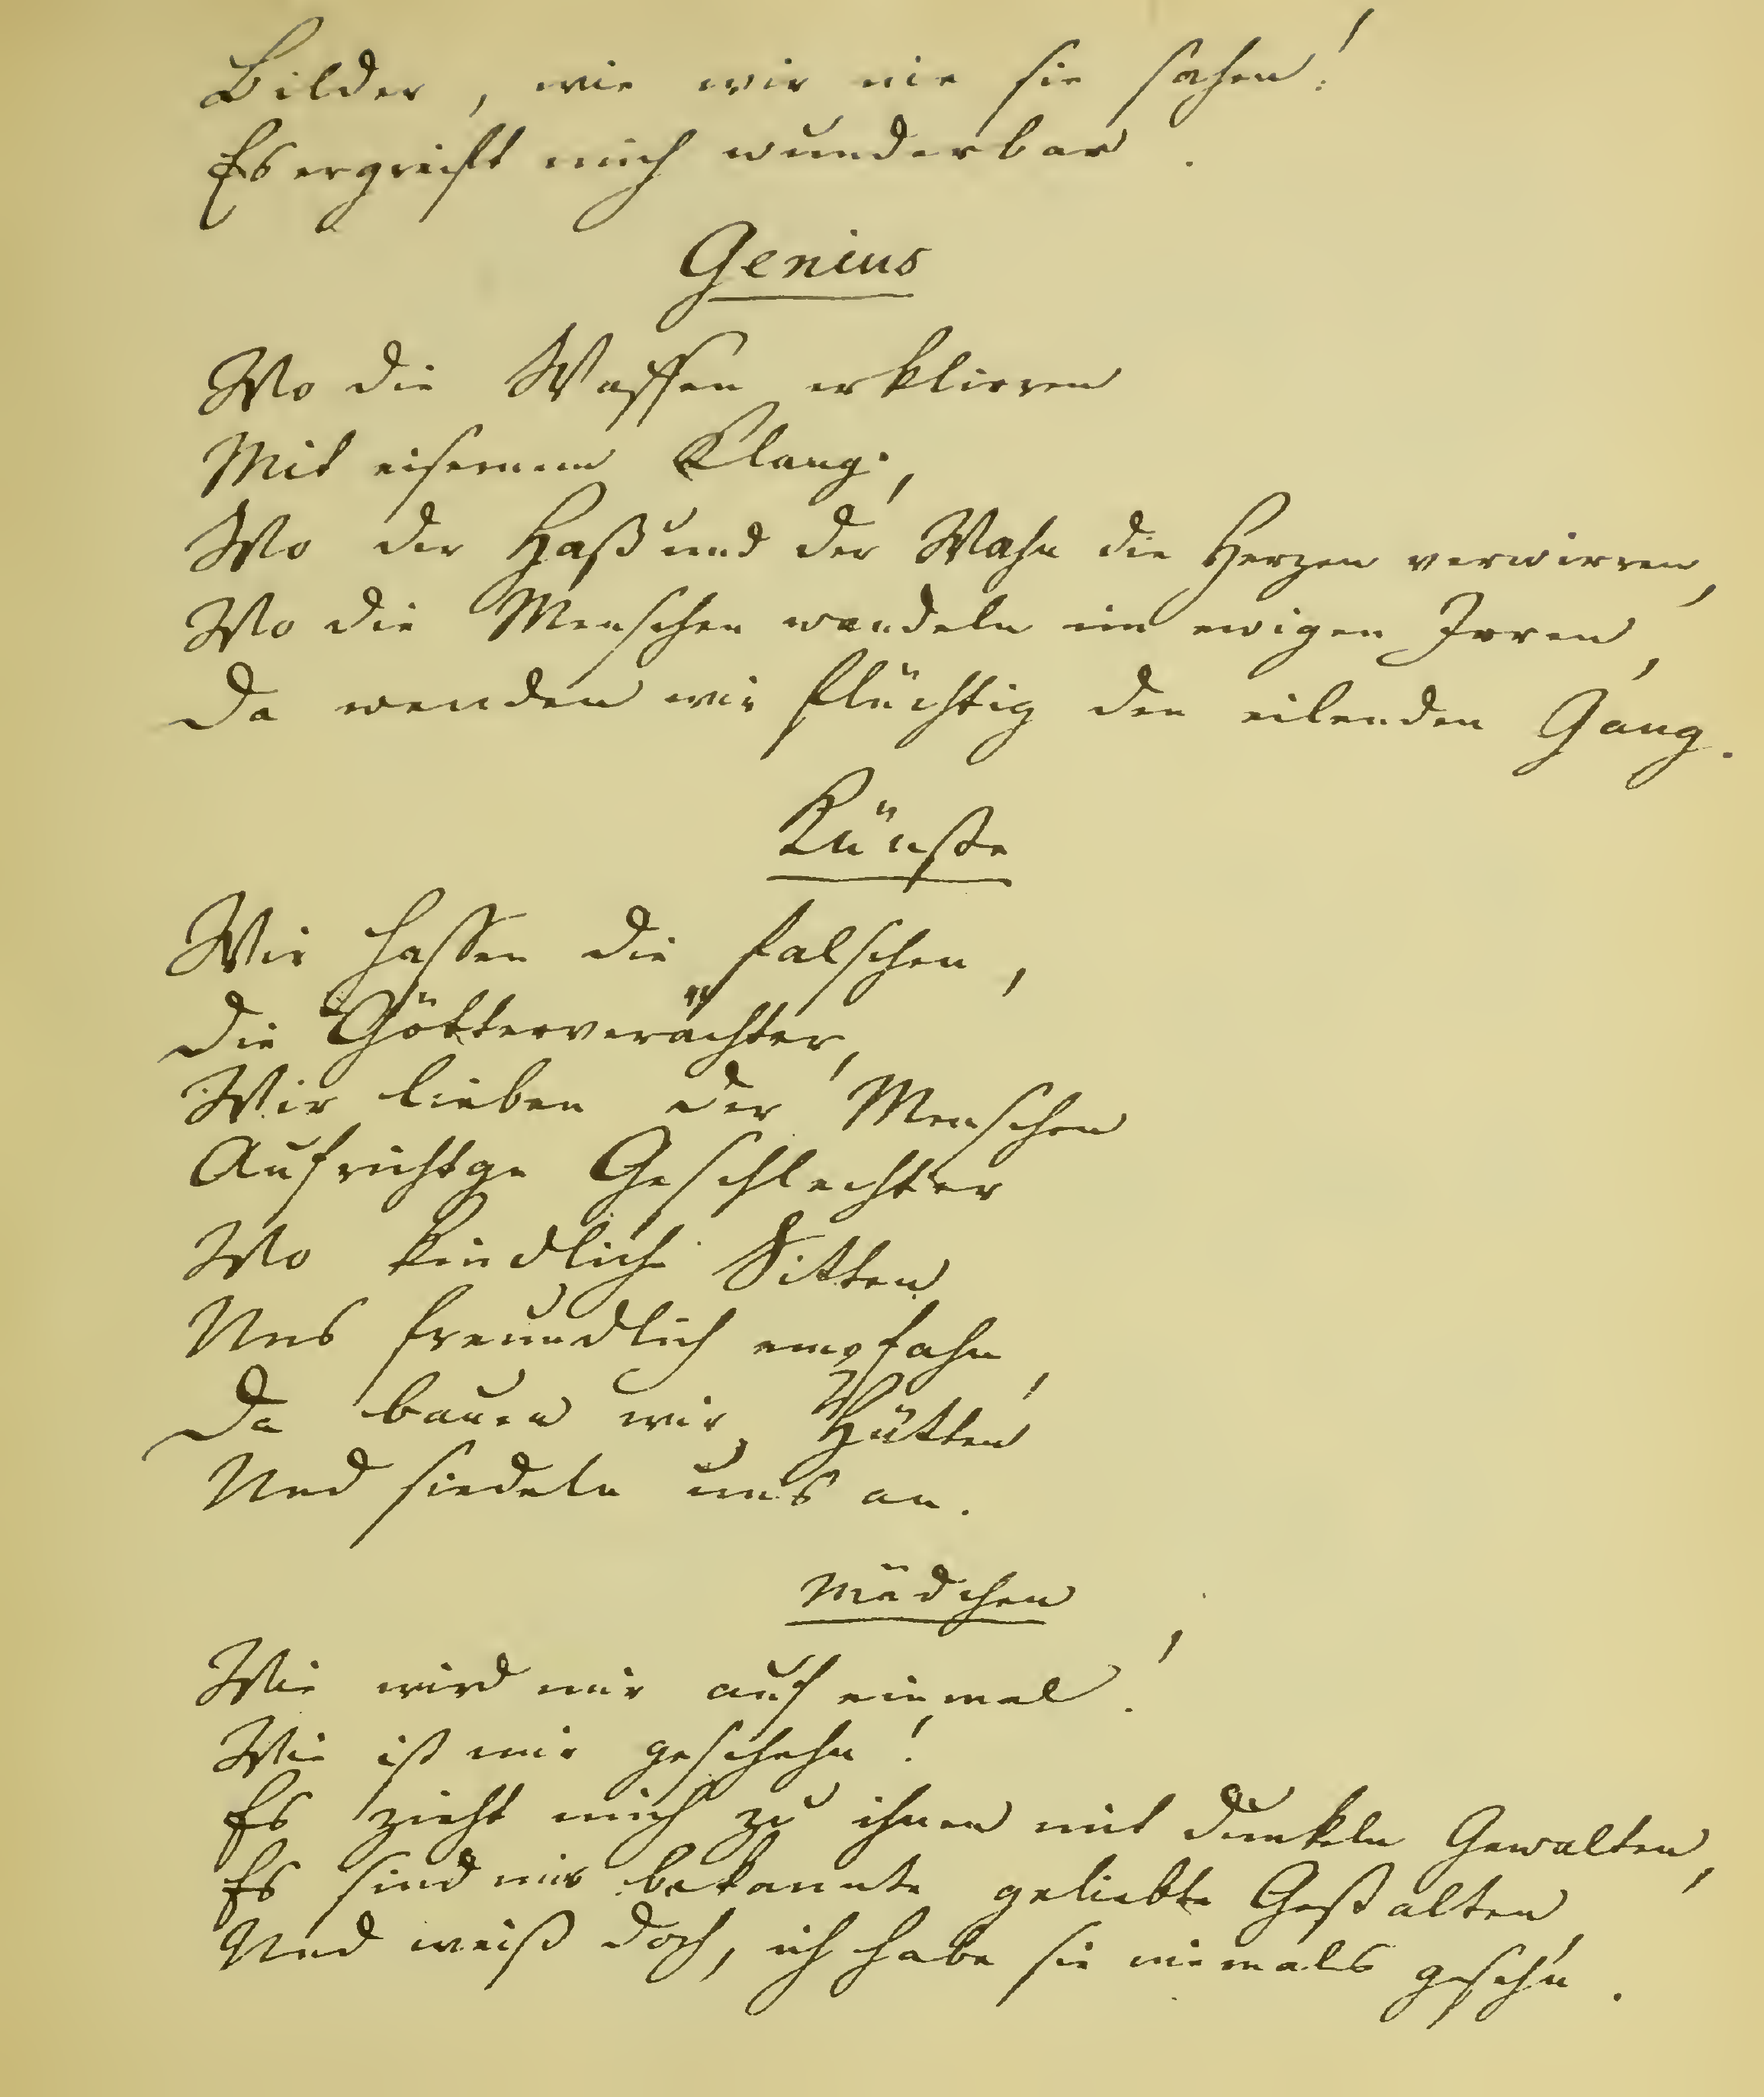 Bilder, wie wir nie sie sahen!
Es ergreift mich wunderbar.
Genius
Wo die Waffen erklirren
Mit eisernem Klang,
Wo der Haß und der Wahn die Herzen verwirren,
Wo die Menschen wandeln im ewigen Irren,
Da wenden wir flüchtig den eilenden Gang.
Künste
Wir hassen die falschen,
Die Götterverächter,
Wir lieben der Menschen
Aufrichtge Geschlechter
Wo kindliche Sitten
Uns freundlich empfahn,
Da bauen wir Hütten
Und siedeln uns an.
Mädchen
Wie wird mir auf einmal!
Wie ist mir geschehn!
Es zieht mich zu ihnen mit dunkeln Gewalten,
Es sind mir bekannte geliebte Gestalten,
Und weiß doch, ich habe sie niemals gesehn.